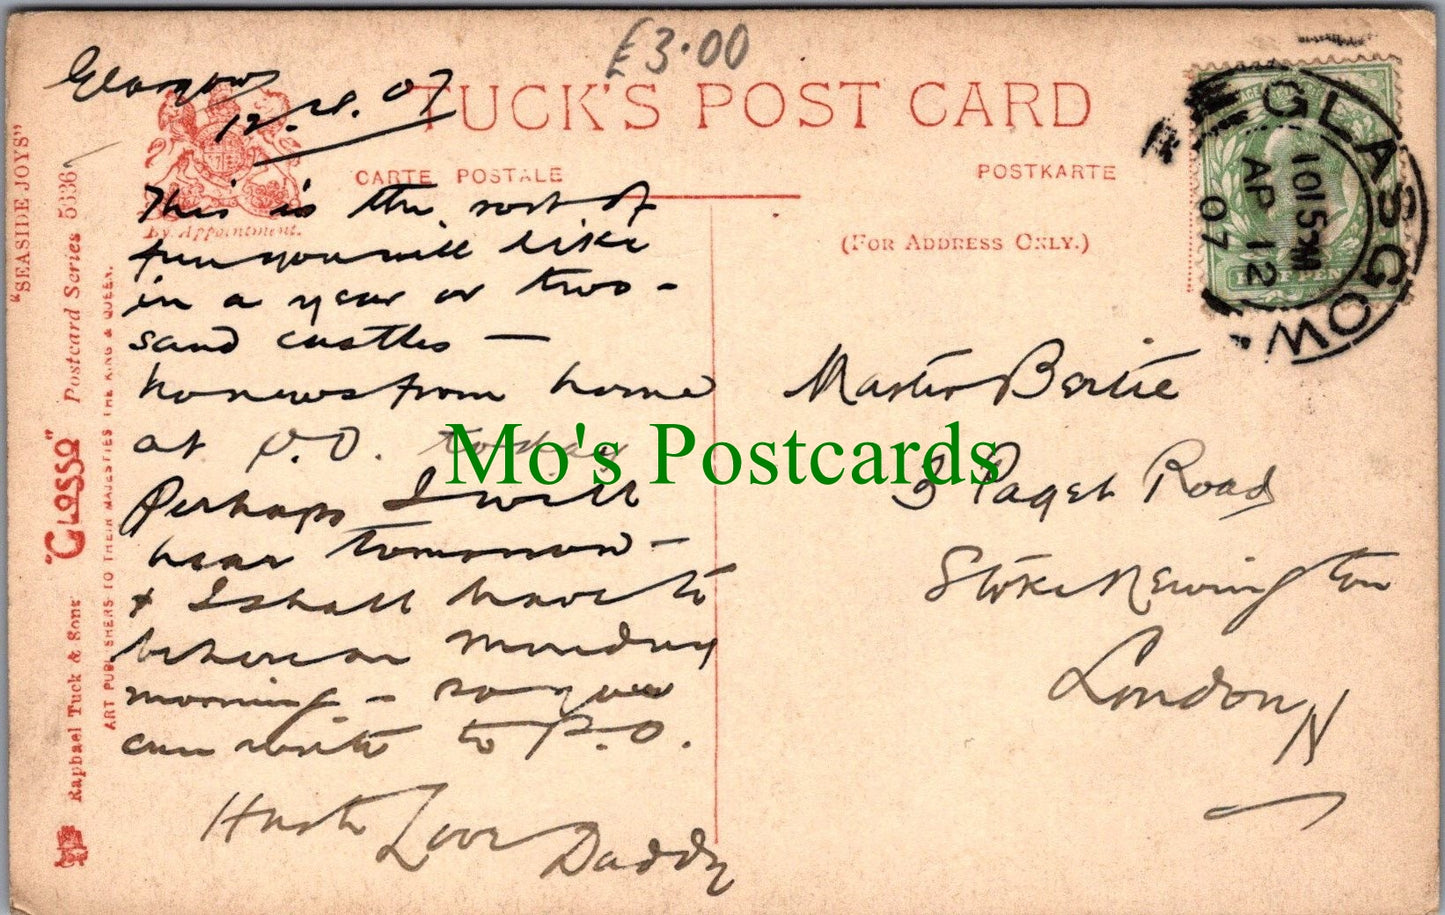 £3.00
Glasgow
12.4.07
TUCK'S POST CARD
CARTE POSTALE
POSTKARTE
By Appointment.
(FOR ADDRESS ONLY.)
GLASGOW
1015PM
AP 12
07
HALFPENNY
"SEASIDE JOYS"
Postcard Series 5336
"GLOSSO"
Raphael Tuck & Sons'
ART PUBLISHERS TO THEIR MAJESTIES THE KING & QUEEN.
This is the sort of
fun you will like
in a year or two -
sand castles —
no news from home
at P.O. today
Perhaps I will
hear tomorrow -
& I shall have to
be here on Monday
morning - so you
can write to P.O.
Love Daddy
Master Bertie
3 Paget Road
Stoke Newington
London N
Mo's Postcards